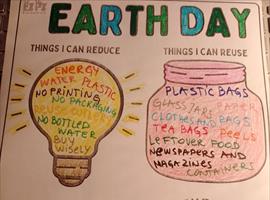 EARTH DAY
THINGS I CAN REDUCE
ENERGY
WATER PLASTIC
NO PRINTING
NO PACKAGING
REUSE CUTLERY
NO BOTTLED
WATER
BUY
WISELY
THINGS I CAN REUSE
PLASTIC BAGS
GLASS JARS PAPER
CLOTHES AND BAGS
TEA BAGS PEELS
LEFTOVER FOOD
NEWSPAPERS AND
MAGAZINES
CONTAINERS